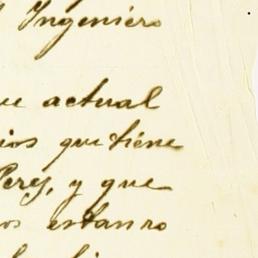 Ingeniero
ue actual
ios que tiene
Perez, y que
os estan ro